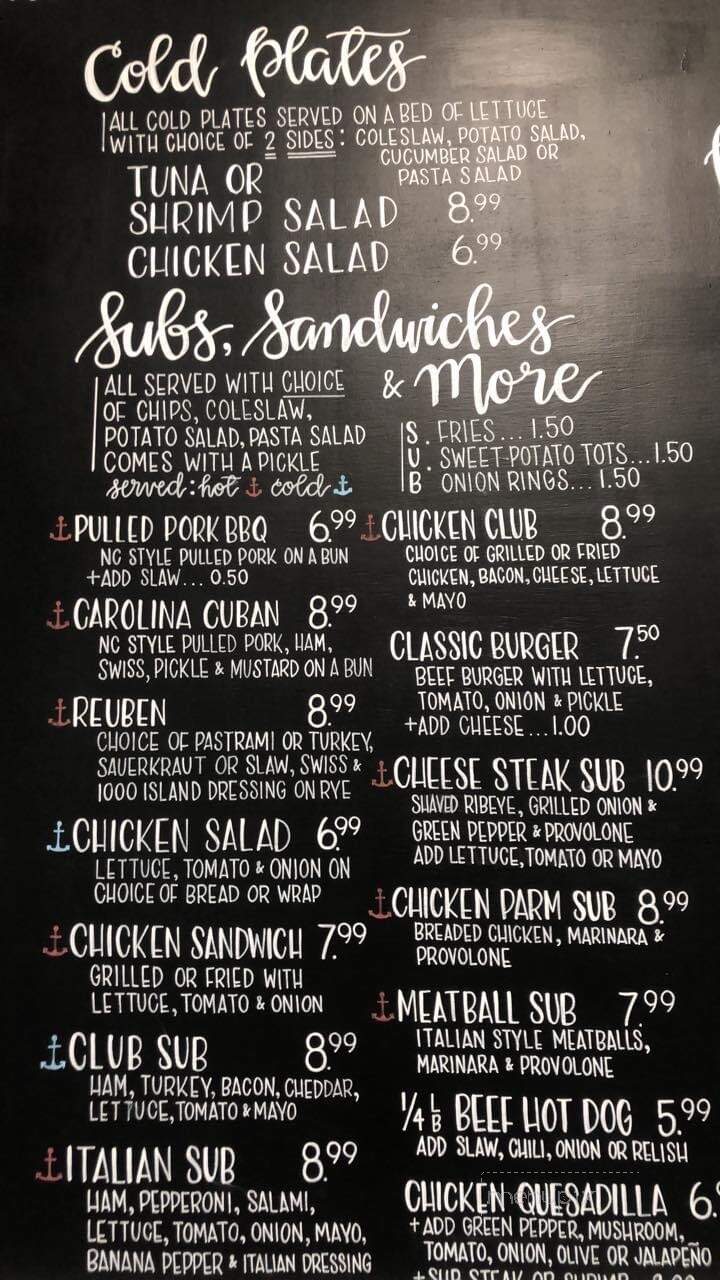 Cold Plates
ALL COLD PLATES SERVED ON A BED OF LETTUCE
WITH CHOICE OF 2 SIDES: COLESLAW, POTATO SALAD,
CUCUMBER SALAD OR
PASTA SALAD
TUNA OR
SHRIMP SALAD 8.99
CHICKEN SALAD 6.99
Subs, Sandwiches
& More
ALL SERVED WITH CHOICE
OF CHIPS, COLESLAW,
POTATO SALAD, PASTA SALAD
COMES WITH A PICKLE
served: hot ⚓ cold ⚓
S. FRIES... 1.50
U. SWEET POTATO TOTS...1.50
B ONION RINGS... 1.50
⚓PULLED PORK BBQ 6.99
NC STYLE PULLED PORK ON A BUN
+ADD SLAW... 0.50
⚓CAROLINA CUBAN 8.99
NC STYLE PULLED PORK, HAM,
SWISS, PICKLE & MUSTARD ON A BUN
⚓REUBEN 8.99
CHOICE OF PASTRAMI OR TURKEY,
SAUERKRAUT OR SLAW, SWISS &
1000 ISLAND DRESSING ON RYE
⚓CHICKEN SALAD 6.99
LETTUCE, TOMATO & ONION ON
CHOICE OF BREAD OR WRAP
⚓CHICKEN SANDWICH 7.99
GRILLED OR FRIED WITH
LETTUCE, TOMATO & ONION
⚓CLUB SUB 8.99
HAM, TURKEY, BACON, CHEDDAR,
LETTUCE, TOMATO & MAYO
⚓ITALIAN SUB 8.99
HAM, PEPPERONI, SALAMI,
LETTUCE, TOMATO, ONION, MAYO,
BANANA PEPPER & ITALIAN DRESSING
⚓CHICKEN CLUB 8.99
CHOICE OF GRILLED OR FRIED
CHICKEN, BACON, CHEESE, LETTUCE
& MAYO
CLASSIC BURGER 7.50
BEEF BURGER WITH LETTUCE,
TOMATO, ONION & PICKLE
+ADD CHEESE...1.00
⚓CHEESE STEAK SUB 10.99
SHAVED RIBEYE, GRILLED ONION &
GREEN PEPPER & PROVOLONE
ADD LETTUCE, TOMATO OR MAYO
⚓CHICKEN PARM SUB 8.99
BREADED CHICKEN, MARINARA &
PROVOLONE
⚓MEATBALL SUB 7.99
ITALIAN STYLE MEATBALLS,
MARINARA & PROVOLONE
1/4 LB BEEF HOT DOG 5.99
ADD SLAW, CHILI, ONION OR RELISH
CHICKEN QUESADILLA 6.
+ADD GREEN PEPPER, MUSHROOM,
TOMATO, ONION, OLIVE OR JALAPEÑO
+SUB STEAK OR SHRIMP